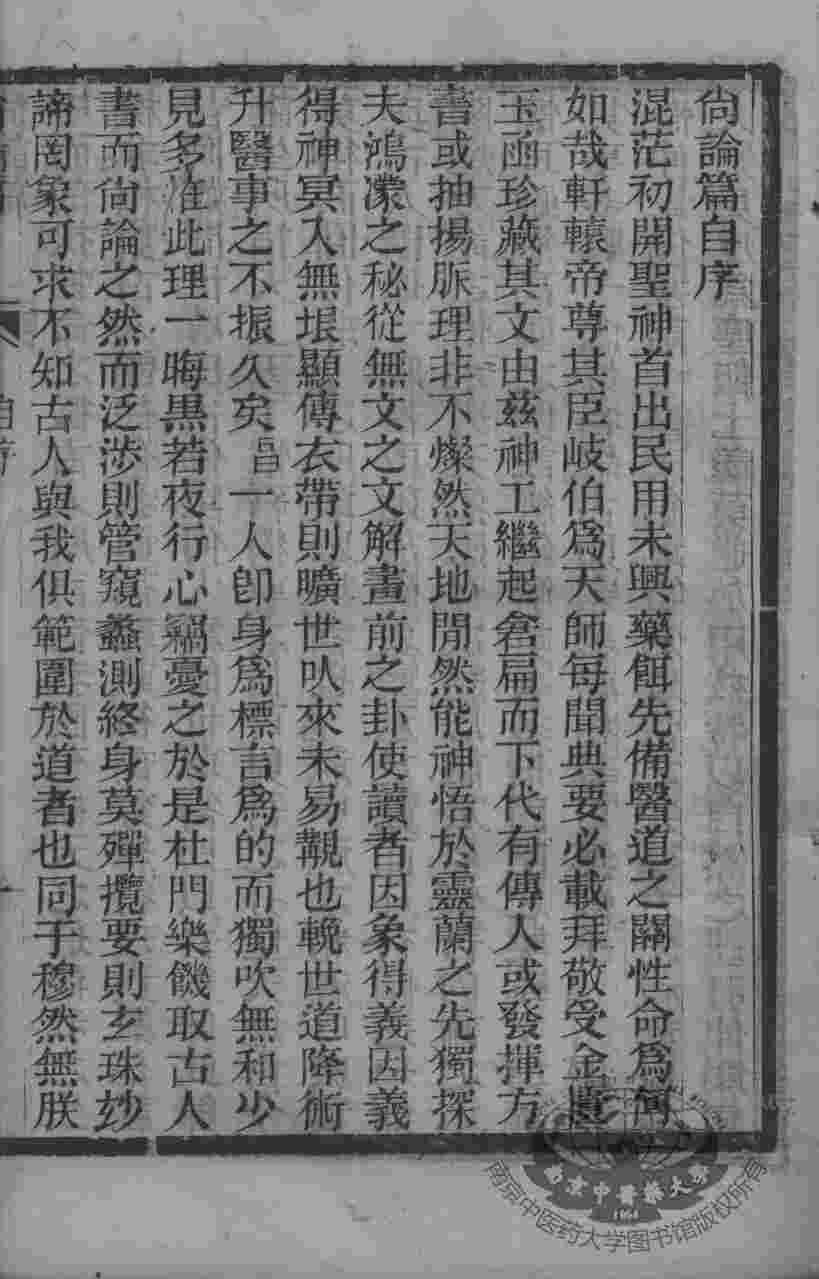 尙論篇自序
混茫初開聖神首出民用未興藥餌先備醫道之關性命爲何
如哉軒轅帝尊其臣岐伯爲天師每聞典要必載拜敬受金匱
玉函珍藏其文由茲神工繼起倉扁而下代有傳人或發揮方
書或抽揚脈理非不燦然天地間然能神悟於靈蘭之先獨探
夫鴻濛之秘從無文之文解畫前之卦使讀者因象得義因義
得神冥入無垠顯傳衣帶則曠世以來未易覯也輓世道降術
升醫事之不振久矣昌一人卽身爲標言爲的而獨吹無和少
見多怪此理一晦黑若夜行心竊憂之於是杜門樂饑取古人
書而尙論之然而泛涉則管窺蠡測終身莫殫攬要則玄珠妙
諦罔象可求不知古人與我俱範圍於道者也同于穆然無朕
自序
南京中医药大学图书馆版权所有
南京中醫藥大學
1954